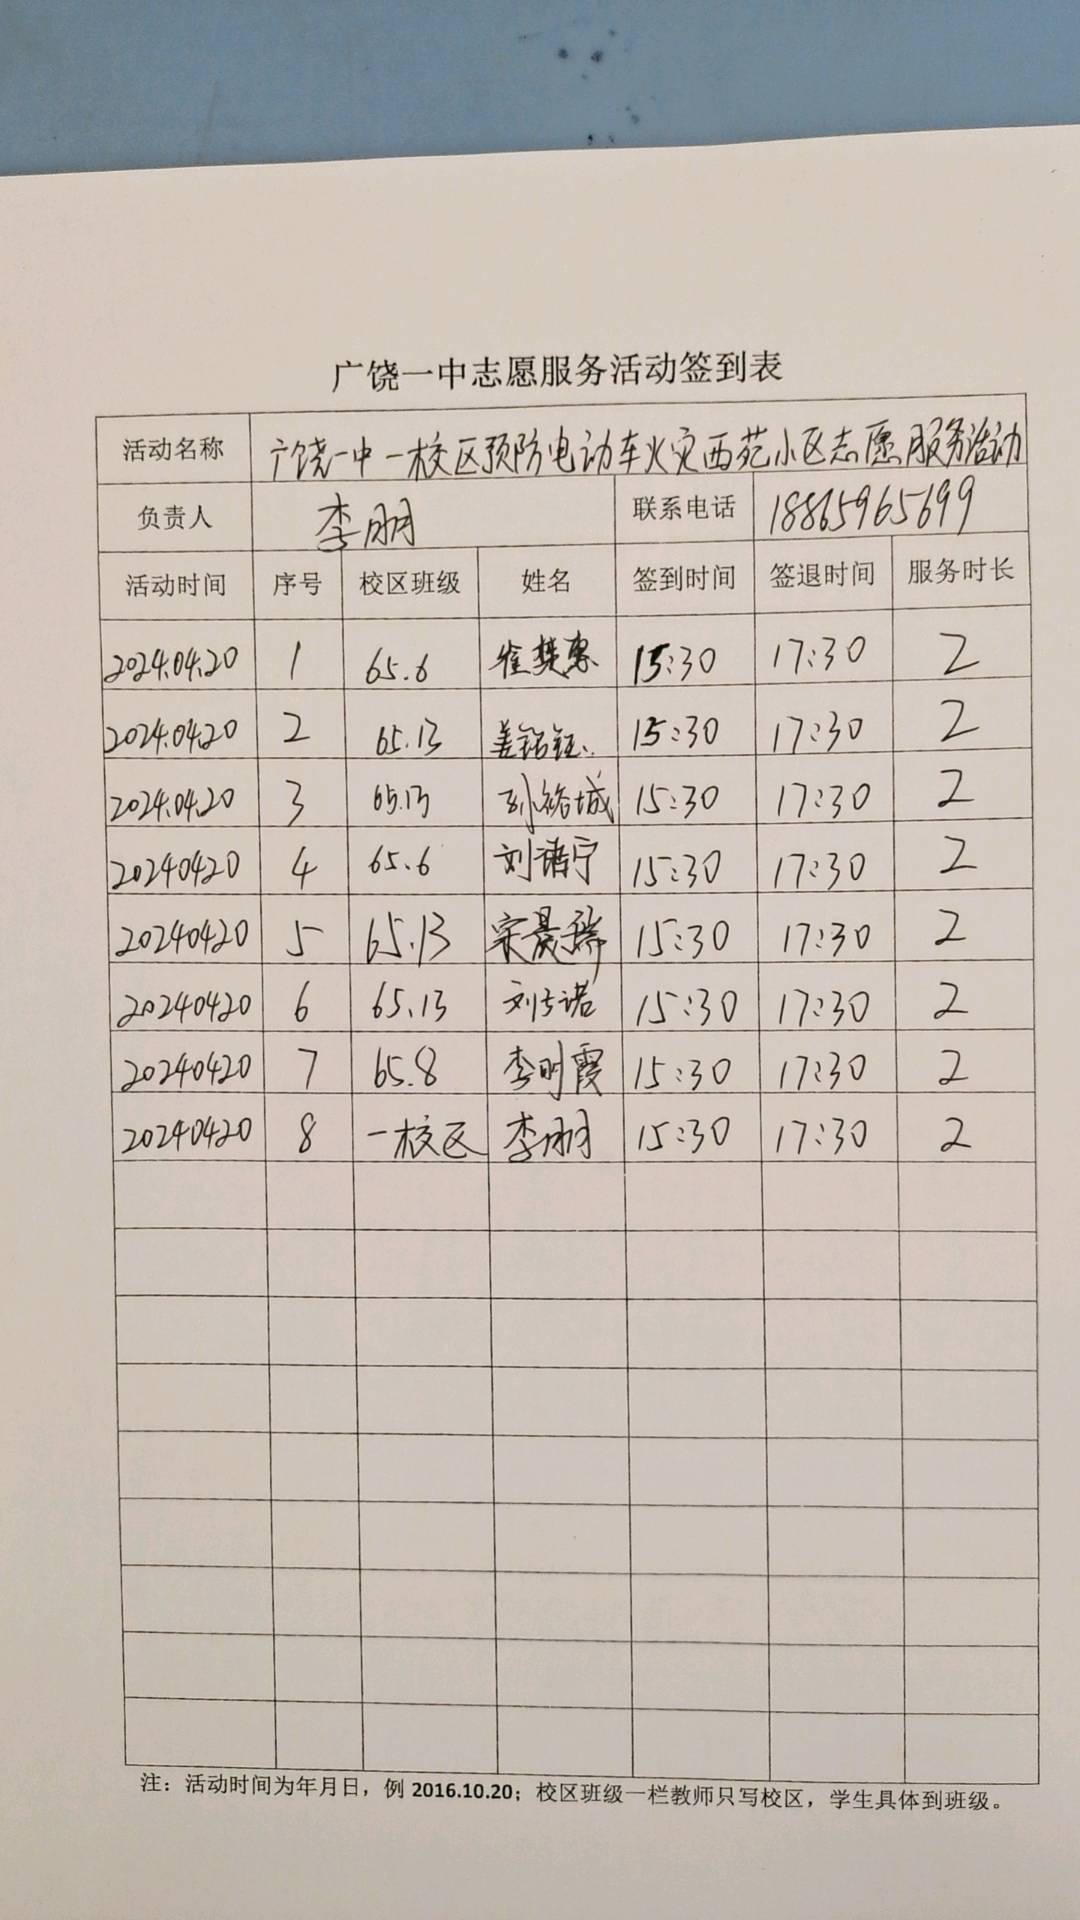 广饶一中志愿服务活动签到表
活动名称 广饶一中一校区预防电动车火灾西苑小区志愿服务活动
负责人 李朋 联系电话 18865965699
活动时间 序号 校区班级 姓名 签到时间 签退时间 服务时长
2024.04.20 1 65.6 15:30 17:30 2
2024.04.20 2 65.13 15:30 17:30 2
2024.04.20 3 65.13 15:30 17:30 2
20240420 4 65.6 刘诺宁 15:30 17:30 2
20240420 5 65.13 宋晨瑞 15:30 17:30 2
20240420 6 65.13 15:30 17:30 2
20240420 7 65.8 李明霞 15:30 17:30 2
20240420 8 一校区 李朋 15:30 17:30 2
注：活动时间为年月日，例 2016.10.20；校区班级一栏教师只写校区，学生具体到班级。